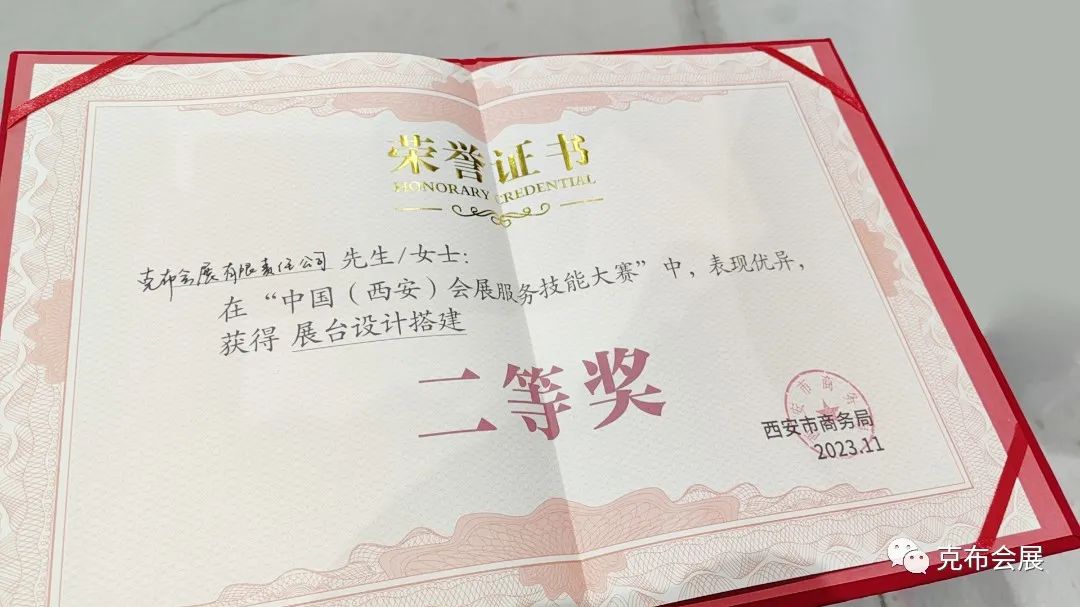 荣誉证书
HONORARY CREDENTIAL
克布会展有限责任公司 先生/女士:
在“中国(西安)会展服务技能大赛”中,表现优异,
获得 展台设计搭建
二等奖
西安市商务局
2023.11
克布会展